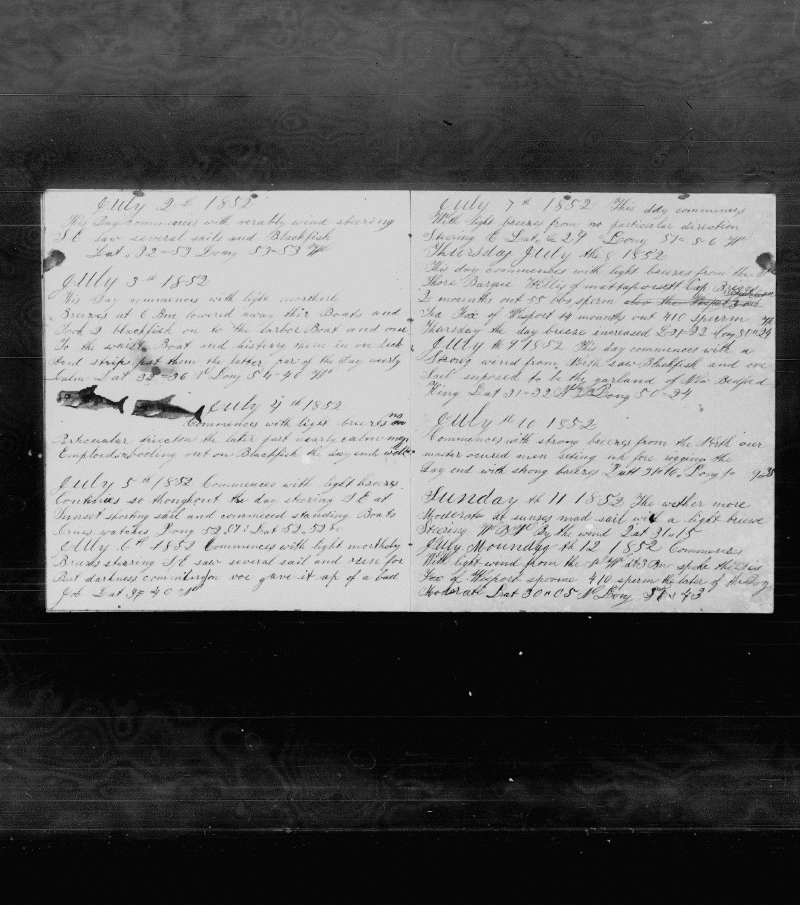 July 2d 1852
This Day commences with verable wind steering
S E saw several sails and Blackfish
Lat, 32=53 Long 53-53 W
July 3th 1852
This Day commences with light northerl
Breezes at 6 Bm lowered away thir Boats and
Took 2 blackfish on to the larbor Boat and one
To the waist Boat and histing them in on deck
And strip them the latter par of the Day nearly
calm Lat 32=36 N Long 54-40 W
July 4th 1852
Commences with light breezes no
Particular direction the later part nearly calm men
Employd on Blackfish the day ends
July 5th 1852 Commences with light breezes
Continues so thoughout the day stering S E at
Sunset shorting sail and commeced standing Boats
Crues watches Long 52,57: Lat 32,53
July 6th 1852 Commences with light northely
Brieds sterring S E saw several sail and
But darkness comming on we gave it up of a bad
Job Lat 37 40 N
July 7th 1852 This day commences
With light breezes from no perticular direction
Steering E Lat 24 Long 51=5-0 W
Thursday July the 8 1852
This day commences with light breezes from the
Shore Barque of mattapoisett Cap
2 mounths out 55 bbs sperm also the
Sea Fox of Wesport 14 mounths out 410 sperm
Thursday the day breeze increased L 31-32 Long
July th 9 1852 This day commences with a
Strong wind from North saw Blackfish and one
Sail suposed to be the garland of New Bedford
King Lat 31-32 N Long 50-24
July th 10 1852
Commences with strong breezes from the North our
master ocused men seting up fore rigging the
Day end with strong breezes Latt 31=16, Long
Sunday th 11 1852 The wether more
Moderate at sunset mad sail with a light breeze
Steering W B W By the wind Lat 31=15
July Mounday th 12 1852 Commenses
With light wind from the N W at 3 Bm spoke the Sea
Fox of Wesport 410 sperm the later of the Day
Moderate Lat 30=05 N Long 51=43